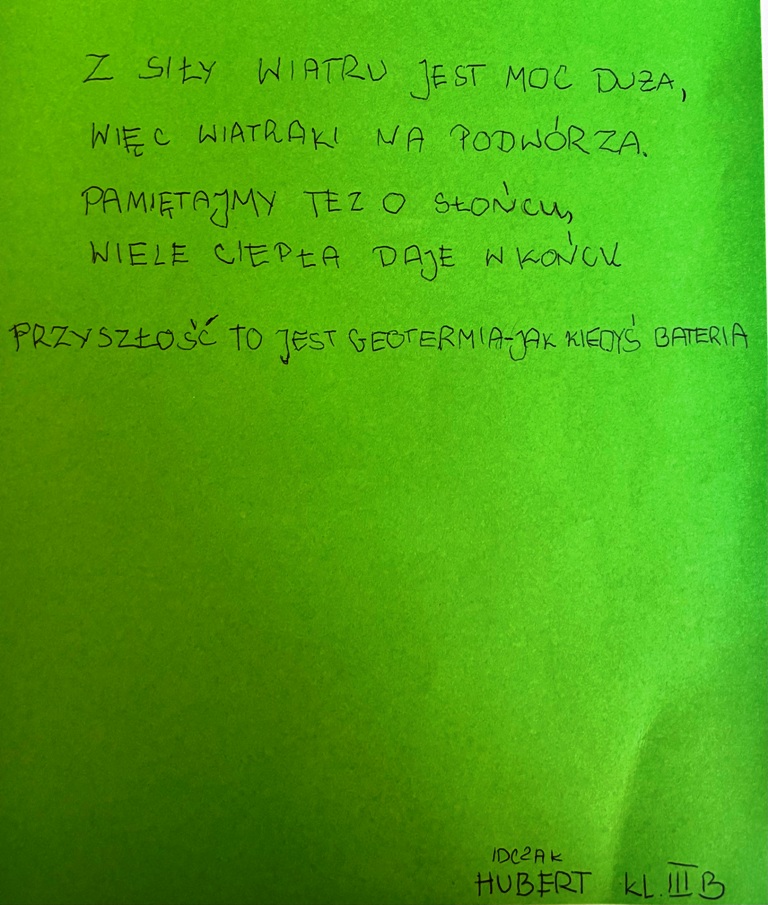 Z SIŁY WIATRU JEST MOC DUŻA,
WIĘC WIATRAKI NA PODWÓRZA.
PAMIĘTAJMY TEZ O SŁOŃCU,
WIELE CIEPŁA DAJE W KOŃCU
PRZYSZŁOŚĆ TO JEST GEOTERMIA-JAK KIEDYŚ BATERIA
IDCZAK
HUBERT KL. III B